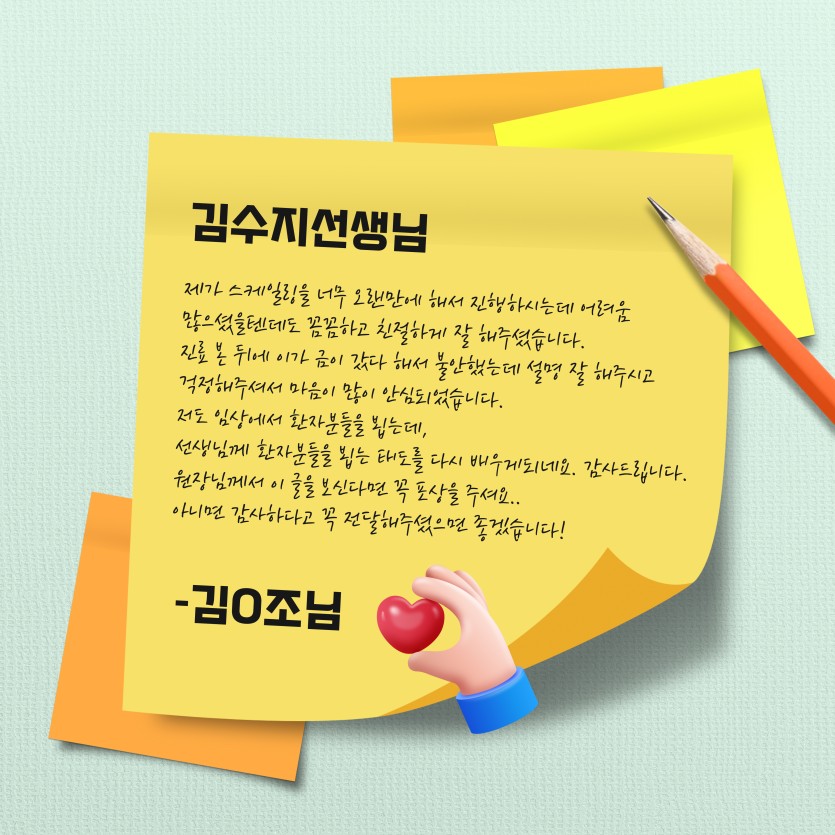 김수지선생님
제가 스케일링을 너무 오랜만에 해서 진행하시는데 어려움
많으셨을텐데도 꼼꼼하고 친절하게 잘 해주셨습니다.
진료 본 뒤에 이가 금이 갔다 해서 불안했는데 설명 잘 해주시고
걱정해주셔서 마음이 많이 안심되었습니다.
저도 임상에서 환자분들을 뵙는데,
선생님께 환자분들을 뵙는 태도를 다시 배우게되네요. 감사드립니다.
원장님께서 이 글을 보신다면 꼭 포상을 주셔요..
아니면 감사하다고 꼭 전달해주셨으면 좋겠습니다!
-김O조님